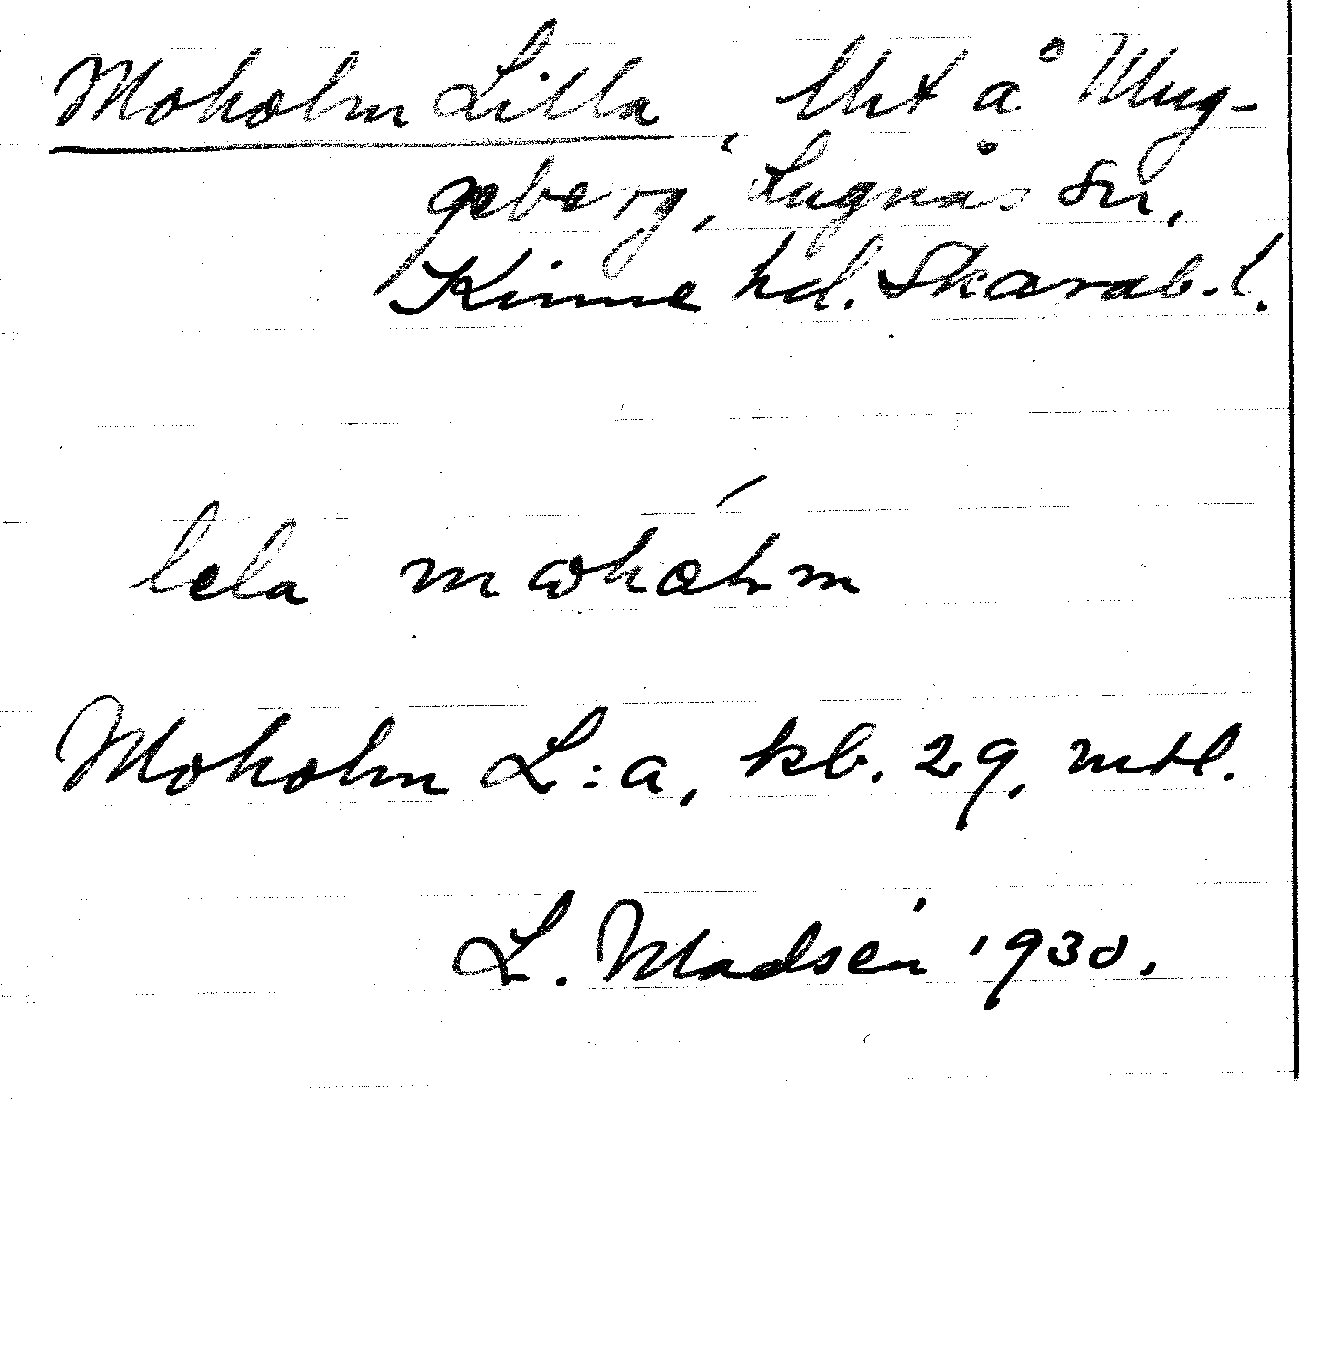 Moholm Lilla, lht å Mug-
geberg, Lugnås sn,
Kinne hd. Skarab. l.
lela mωhólm
Moholm L:a, kb. 29, mtl.
L. Madsén 1930.